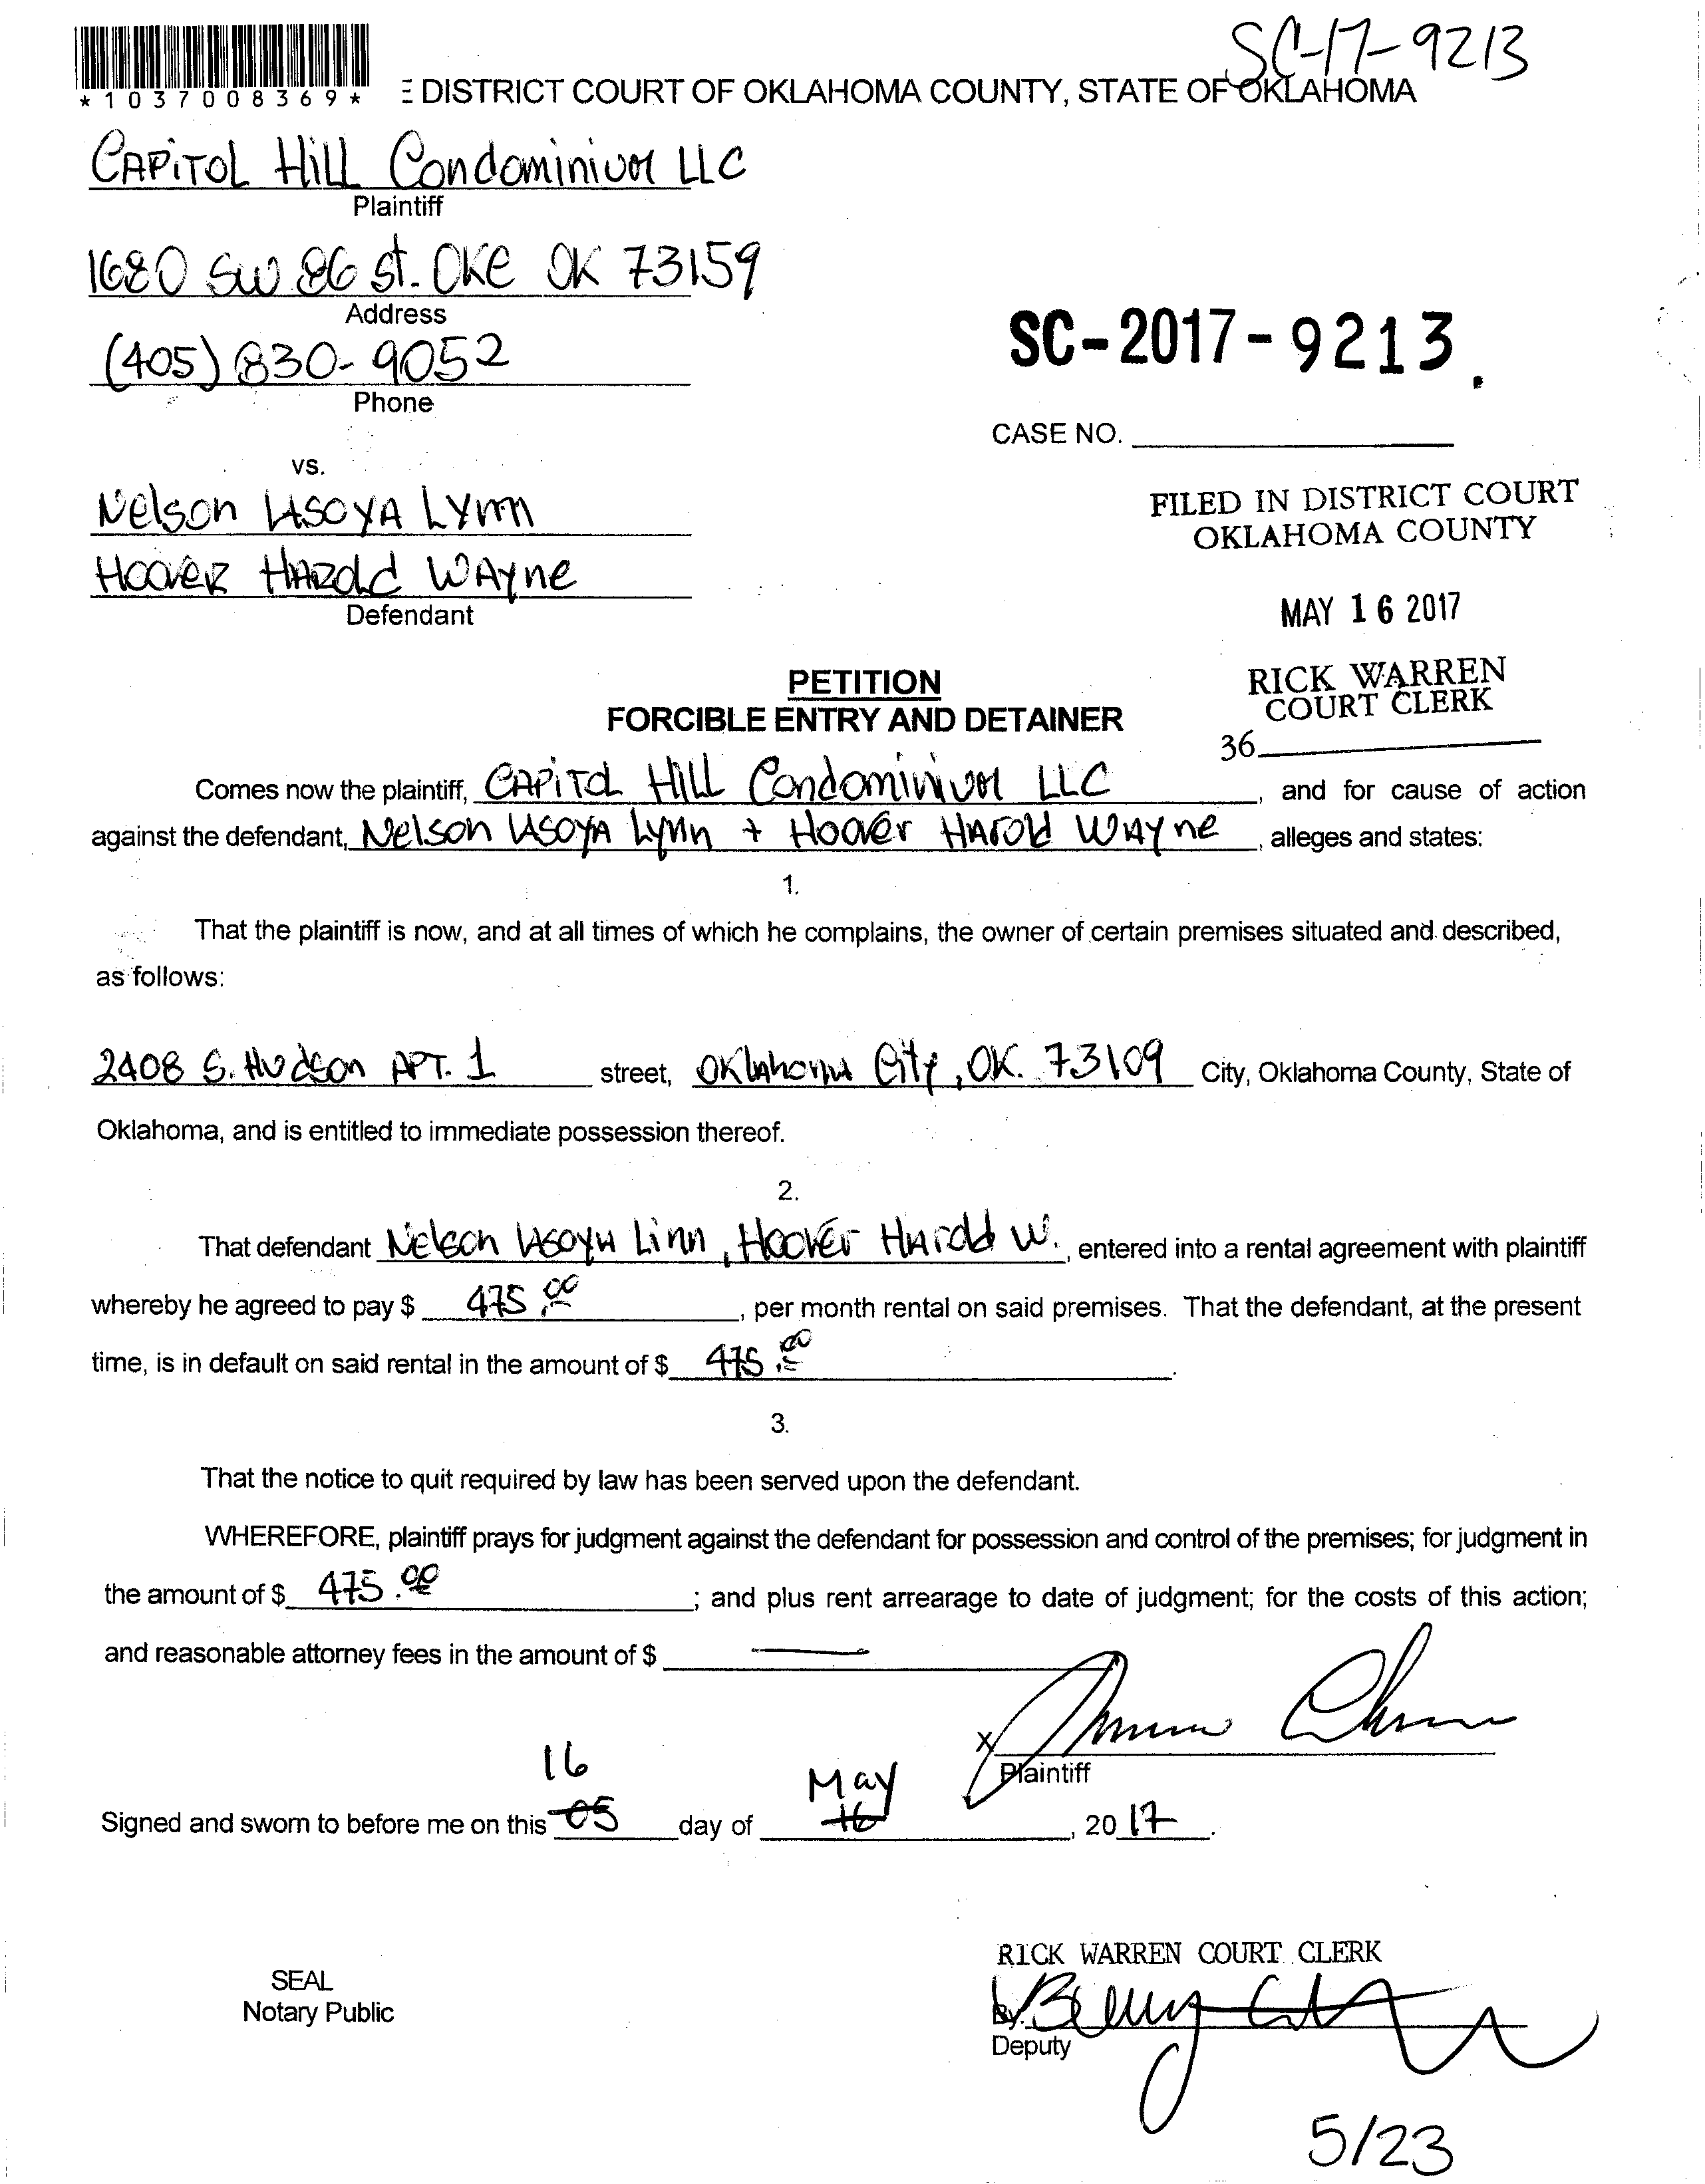 SC-17-9213
*1037008369*
E DISTRICT COURT OF OKLAHOMA COUNTY, STATE OF OKLAHOMA
CAPITOL Hill Condominium LLC
Plaintiff
1680 SW 86 st. OKC OK 73159
Address
(405) 830-9052
Phone
SC-2017-9213.
CASE NO.
vs.
Nelson LASOYA LYNN
HOOVER HAROLD WAYNE
Defendant
FILED IN DISTRICT COURT
OKLAHOMA COUNTY
MAY 16 2017
RICK WARREN
COURT CLERK
36
PETITION
FORCIBLE ENTRY AND DETAINER
Comes now the plaintiff, CAPITOL HILL Condominium LLC, and for cause of action
against the defendant, Nelson LASOYA Lynn + Hoover HAROLD WAYne, alleges and states:
1.
That the plaintiff is now, and at all times of which he complains, the owner of certain premises situated and described,
as follows:
2408 S. Hudson APT. 1 street, Oklahoma City, OK. 73109 City, Oklahoma County, State of
Oklahoma, and is entitled to immediate possession thereof.
2.
That defendant Nelson LASOYA Linn, Hoover Harold W., entered into a rental agreement with plaintiff
whereby he agreed to pay $ 475.00, per month rental on said premises. That the defendant, at the present
time, is in default on said rental in the amount of $ 475.00.
3.
That the notice to quit required by law has been served upon the defendant.
WHEREFORE, plaintiff prays for judgment against the defendant for possession and control of the premises; for judgment in
the amount of $ 475.00; and plus rent arrearage to date of judgment; for the costs of this action;
and reasonable attorney fees in the amount of $ —
X
Plaintiff
16 May
Signed and sworn to before me on this 05 day of 16, 2017.
SEAL
Notary Public
RICK WARREN COURT CLERK
By:
Deputy
5/23